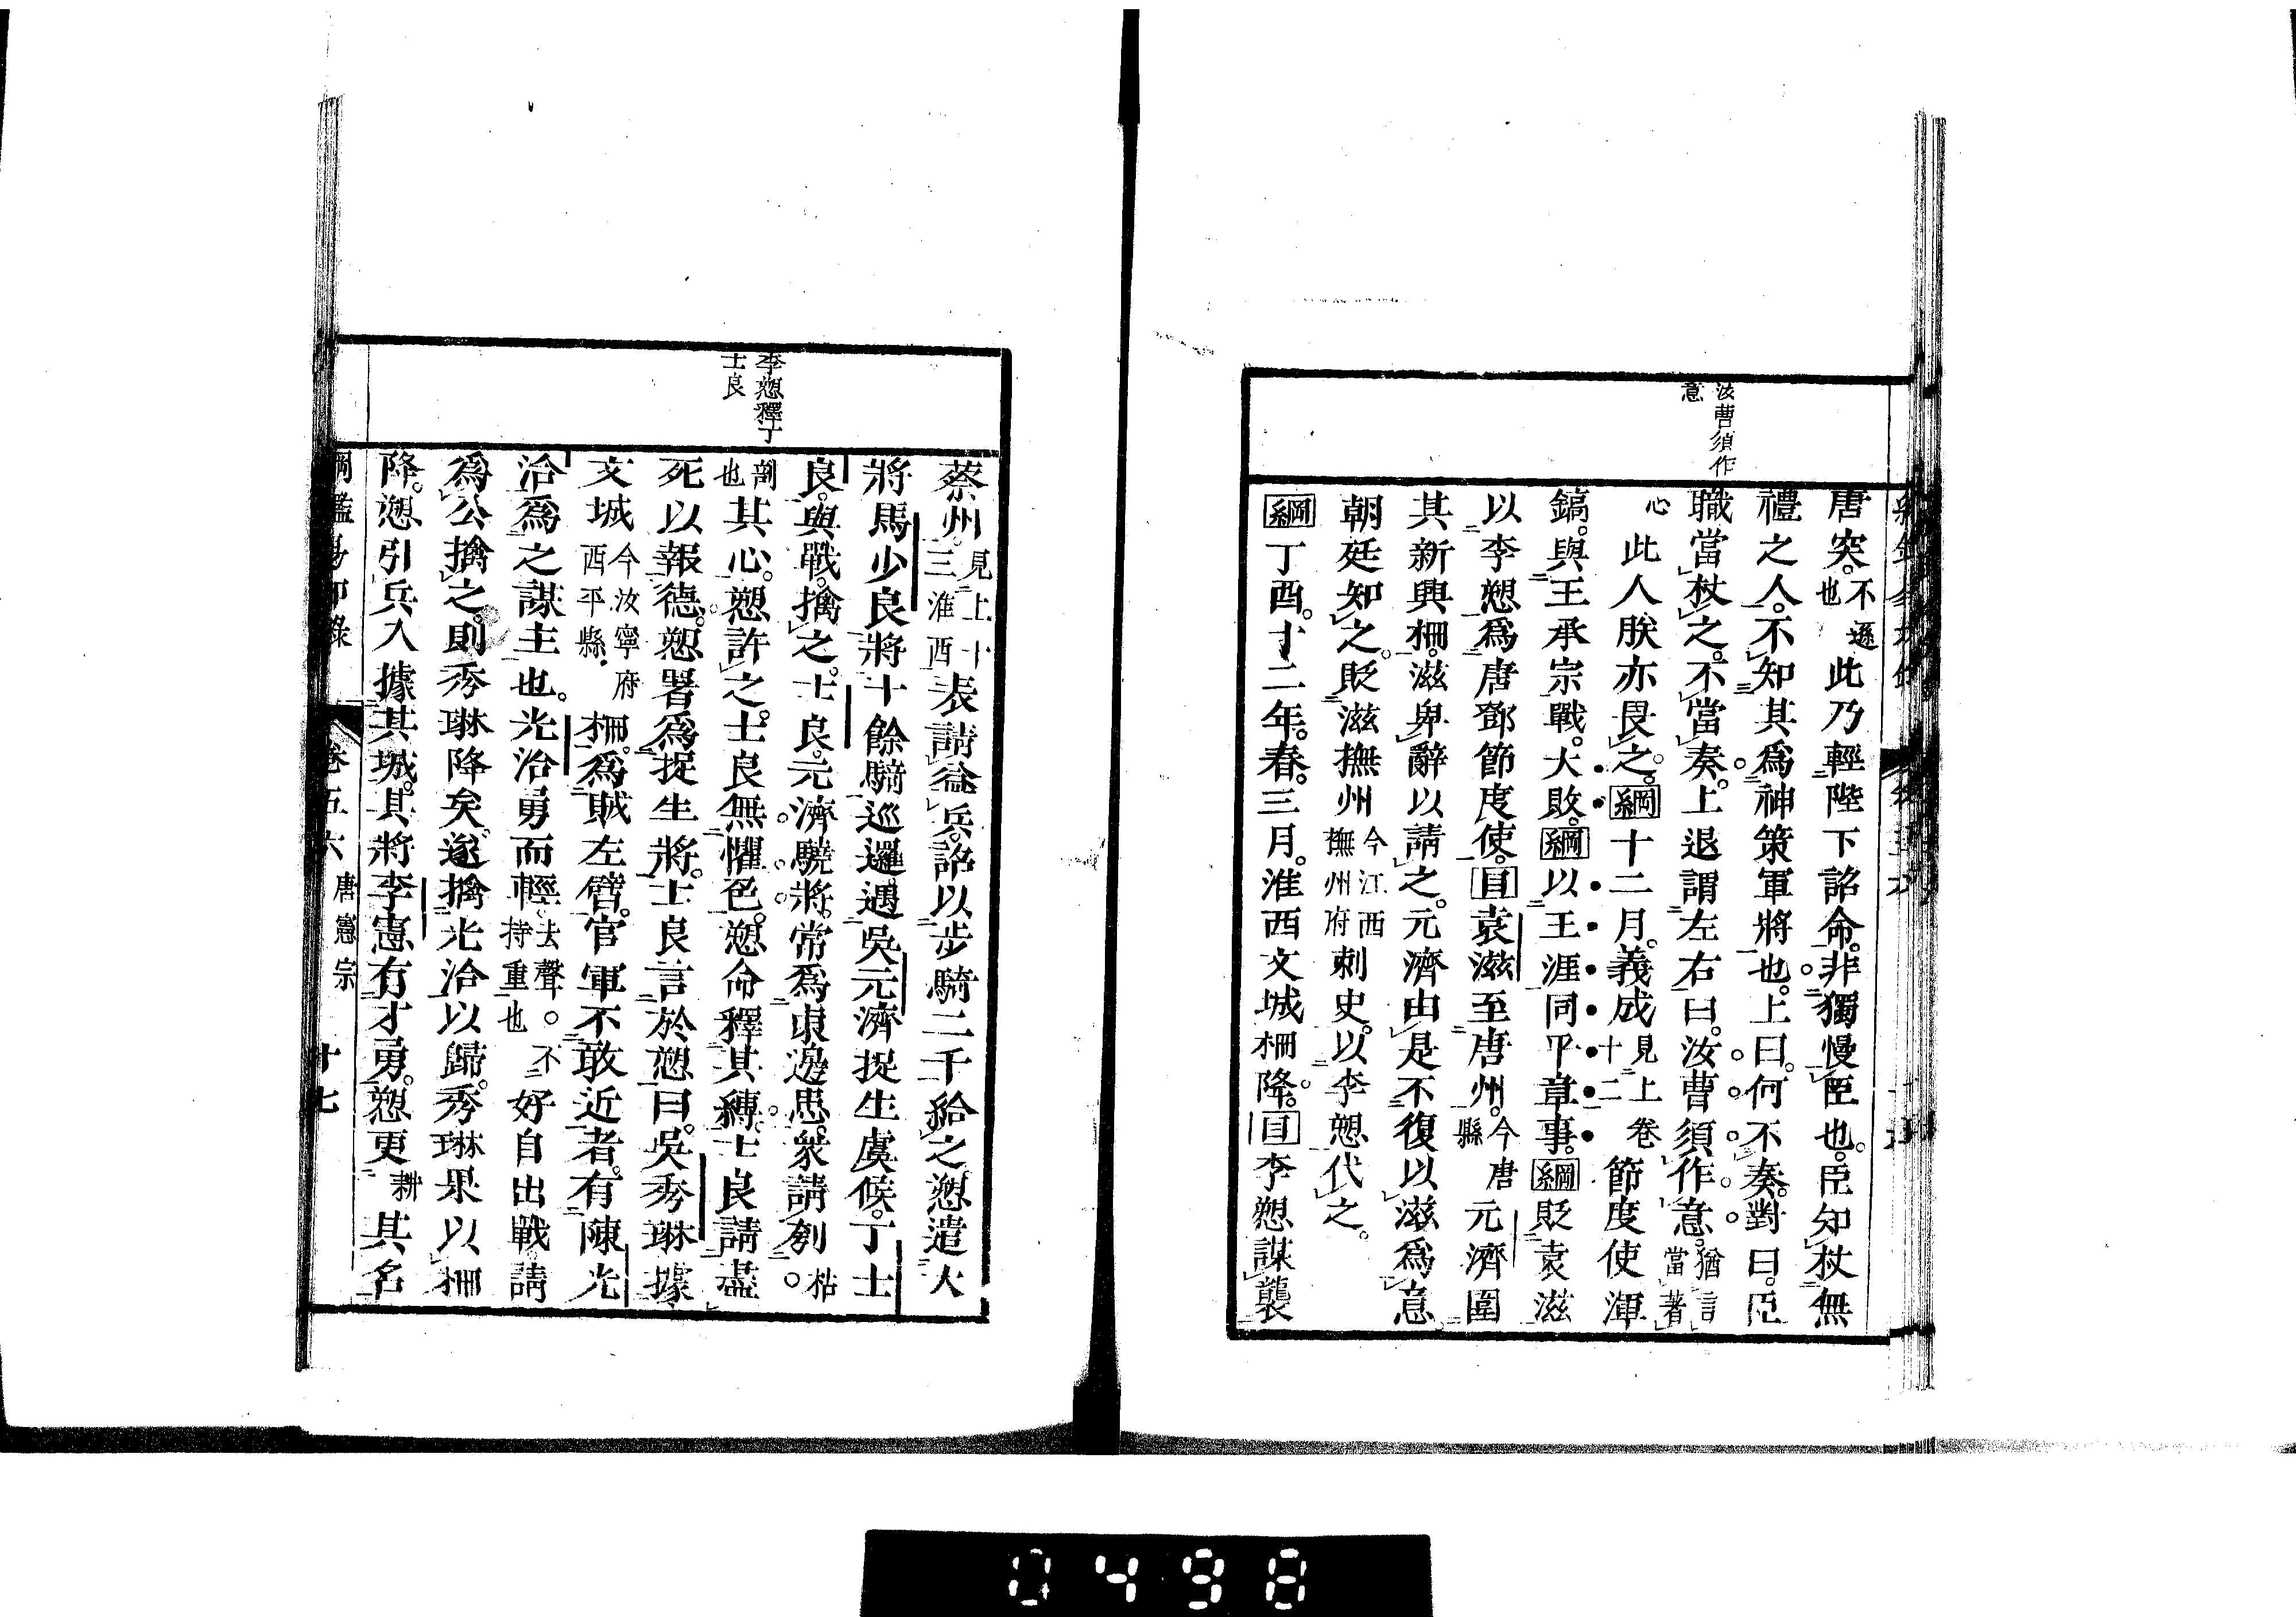 汝曹須作
意
唐突。不遜也此乃輕陛下詔命。非獨慢臣也。臣知杖無
禮之人。不知其爲神策軍將也。上曰。何不奏。對曰。臣
職當杖之。不當奏。上退謂左右曰。汝曹須作意。猶言當著
心此人朕亦畏之。綱十二月。義成見上卷十二節度使渾
鎬。與王承宗戰。大敗。綱以王涯同平章事。綱貶袁滋
以李愬爲唐鄧節度使。目袁滋至唐州。今唐縣元濟圍
其新興柵。滋卑辭以請之。元濟由是不復以滋爲意
朝廷知之。貶滋撫州今江西撫州府刺史。以李愬代之。
綱丁酉。十二年。春。三月。淮西文城柵降。目李愬謀襲
李愬釋丁
士良
蔡州。見上十三淮西表請益兵。詔以步騎二千給之。愬遣大
將馬少良將十餘騎巡邏。遇吳元濟捉生虞候。丁士
良。與戰。擒之。士良。元濟驍將。常爲東邊患。衆請刳枯。
剖也其心。愬許之。士良無懼色。愬命釋其縛。士良請盡
死以報德。愬署爲捉生將。士良言於愬曰。吳秀琳據
文城今汝寧府西平縣柵。爲賊左臂。官軍不敢近者。有陳光
洽爲之謀主也。光洽勇而輕。去聲。不持重也好自出戰。請
爲公擒之。則秀琳降矣。遂擒光洽以歸。秀琳果以柵
降。愬引兵入據其城。其將李憲有才勇。愬更耕其名
綱鑑易知錄 卷五六 唐憲宗 十七
0498